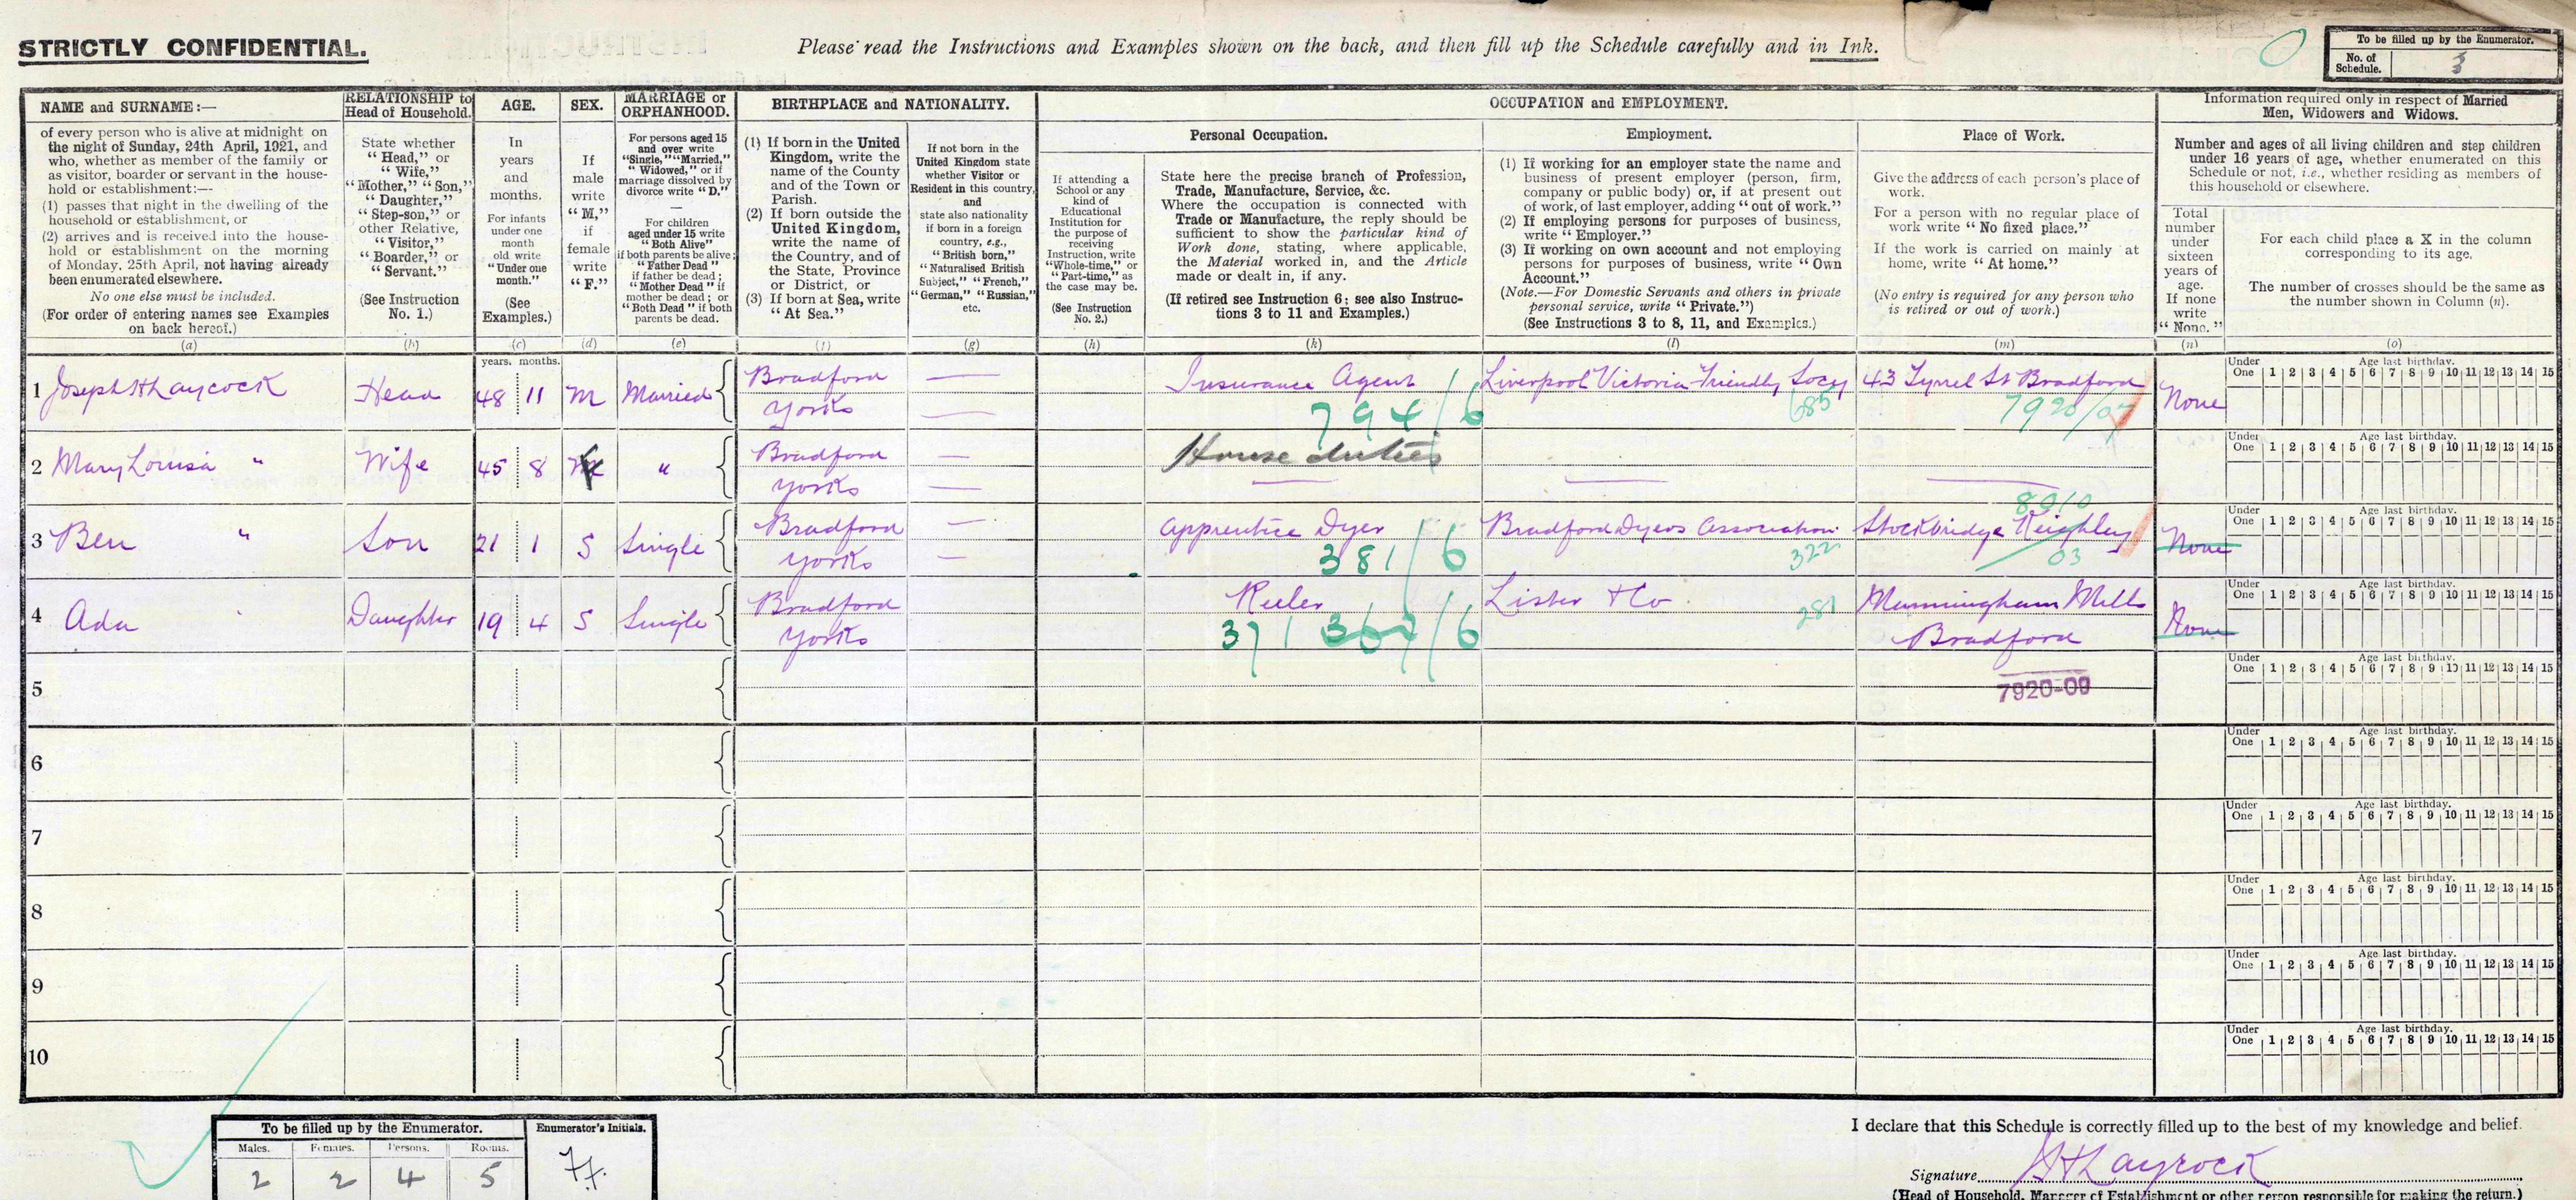 STRICTLY CONFIDENTIAL.
Please read the Instructions and Examples shown on the back, and then fill up the Schedule carefully and in Ink.
To be filled up by the Enumerator.
No. of Schedule. 3
NAME and SURNAME:—
of every person who is alive at midnight on
the night of Sunday, 24th April, 1921, and
who, whether as member of the family or
as visitor, boarder or servant in the house-
hold or establishment:—
(1) passes that night in the dwelling of the
household or establishment, or
(2) arrives and is received into the house-
hold or establishment on the morning
of Monday, 25th April, not having already
been enumerated elsewhere.
No one else must be included.
(For order of entering names see Examples
on back hereof.)
(a)
RELATIONSHIP to
Head of Household.
State whether
"Head," or
"Wife,"
"Mother," "Son,"
"Daughter,"
"Step-son," or
other Relative,
"Visitor,"
"Boarder," or
"Servant."
(See Instruction
No. 1.)
(b)
AGE.
In
years
and
months.
For infants
under one
month
old write
"Under one
month."
(See
Examples.)
(c)
SEX.
If
male
write
"M,"
if
female
write
"F."
(d)
MARRIAGE or
ORPHANHOOD.
For persons aged 15
and over write
"Single," "Married,"
"Widowed," or if
marriage dissolved by
divorce write "D."
—
For children
aged under 15 write
"Both Alive"
if both parents be alive;
"Father Dead"
if father be dead;
"Mother Dead" if
mother be dead; or
"Both Dead" if both
parents be dead.
(e)
BIRTHPLACE and NATIONALITY.
(1) If born in the United
Kingdom, write the
name of the County
and of the Town or
Parish.
(2) If born outside the
United Kingdom,
write the name of
the Country, and of
the State, Province
or District, or
(3) If born at Sea, write
"At Sea."
(f)
If not born in the
United Kingdom state
whether Visitor or
Resident in this country,
and
state also nationality
if born in a foreign
country, e.g.,
"British born,"
"Naturalised British
Subject," "French,"
"German," "Russian,"
etc.
(g)
OCCUPATION and EMPLOYMENT.
If attending a
School or any
kind of
Educational
Institution for
the purpose of
receiving
Instruction, write
"Whole-time," or
"Part-time," as
the case may be.
(See Instruction
No. 2.)
(h)
Personal Occupation.
State here the precise branch of Profession,
Trade, Manufacture, Service, &c.
Where the occupation is connected with
Trade or Manufacture, the reply should be
sufficient to show the particular kind of
Work done, stating, where applicable,
the Material worked in, and the Article
made or dealt in, if any.
(If retired see Instruction 6; see also Instruc-
tions 3 to 11 and Examples.)
(k)
Employment.
(1) If working for an employer state the name and
business of present employer (person, firm,
company or public body) or, if at present out
of work, of last employer, adding "out of work."
(2) If employing persons for purposes of business,
write "Employer."
(3) If working on own account and not employing
persons for purposes of business, write "Own
Account."
(Note.—For Domestic Servants and others in private
personal service, write "Private.")
(See Instructions 3 to 8, 11, and Examples.)
(l)
Place of Work.
Give the address of each person's place of
work.
For a person with no regular place of
work write "No fixed place."
If the work is carried on mainly at
home, write "At home."
(No entry is required for any person who
is retired or out of work.)
(m)
Information required only in respect of Married
Men, Widowers and Widows.
Number and ages of all living children and step children
under 16 years of age, whether enumerated on this
Schedule or not, i.e., whether residing as members of
this household or elsewhere.
Total
number
under
sixteen
years of
age.
If none
write
"None."
(n)
For each child place a X in the column
corresponding to its age.
The number of crosses should be the same as
the number shown in Column (n).
(o)
years. months.
1 Joseph H Laycock Head 48 11 M Married Bradford Yorks Insurance Agent 794/6 Liverpool Victoria Friendly Socy 685 43 Tyrrel St Bradford 7920/07 None
Under One Age last birthday. 1 2 3 4 5 6 7 8 9 10 11 12 13 14 15
2 Mary Louisa " Wife 45 8 F " Bradford Yorks House duties
Under One Age last birthday. 1 2 3 4 5 6 7 8 9 10 11 12 13 14 15
3 Ben " Son 21 1 S Single Bradford Yorks Apprentice Dyer 381/6 Bradford Dyers Association 322 Stockbridge Keighley 8010 03 None
Under One Age last birthday. 1 2 3 4 5 6 7 8 9 10 11 12 13 14 15
4 Ada " Daughter 19 4 S Single Bradford Yorks Reeler 371 367/6 Lister & Co 281 Manningham Mills Bradford None
Under One Age last birthday. 1 2 3 4 5 6 7 8 9 10 11 12 13 14 15
5 7920-09
Under One Age last birthday. 1 2 3 4 5 6 7 8 9 10 11 12 13 14 15
6
Under One Age last birthday. 1 2 3 4 5 6 7 8 9 10 11 12 13 14 15
7
Under One Age last birthday. 1 2 3 4 5 6 7 8 9 10 11 12 13 14 15
8
Under One Age last birthday. 1 2 3 4 5 6 7 8 9 10 11 12 13 14 15
9
Under One Age last birthday. 1 2 3 4 5 6 7 8 9 10 11 12 13 14 15
10
Under One Age last birthday. 1 2 3 4 5 6 7 8 9 10 11 12 13 14 15
To be filled up by the Enumerator.
Males. Females. Persons. Rooms.
2 2 4 5
Enumerator's Initials.
I declare that this Schedule is correctly filled up to the best of my knowledge and belief.
Signature JH Laycock
(Head of Household, Manager of Establishment or other person responsible for making the return.)